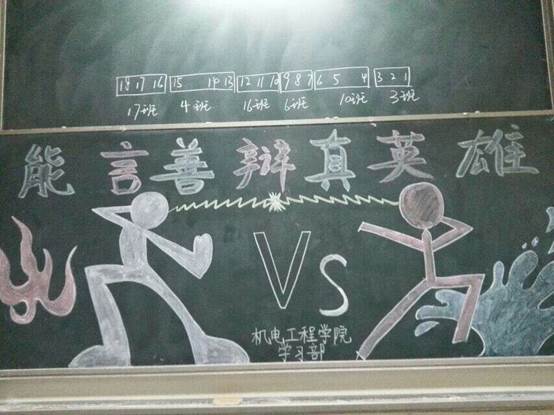 18 17 16 15 14 13 12 11 10 9 8 7 6 5 4 3 2 1
17班 4班 16班 6班 10班 3班
能言善辩真英雄
VS
机电工程学院
学习部